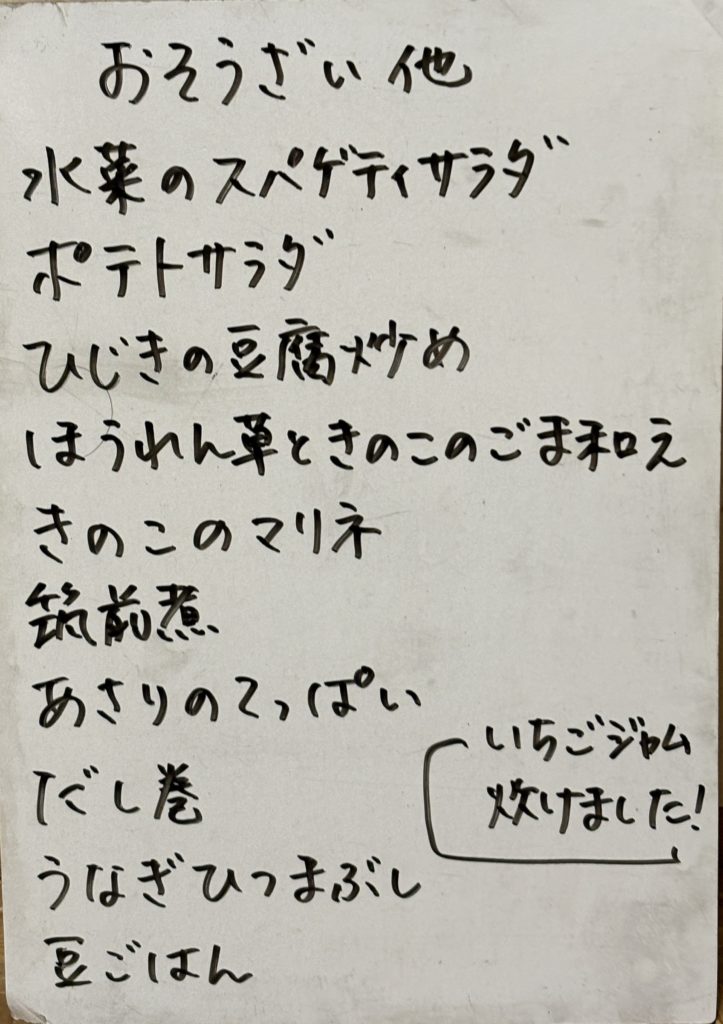 おそうざい 他
水菜のスパゲティサラダ
ポテトサラダ
ひじきの豆腐炒め
ほうれん草ときのこのごま和え
きのこのマリネ
筑前煮
あさりのてっぱい
だし巻
うなぎひつまぶし
豆ごはん
いちごジャム
炊けました!